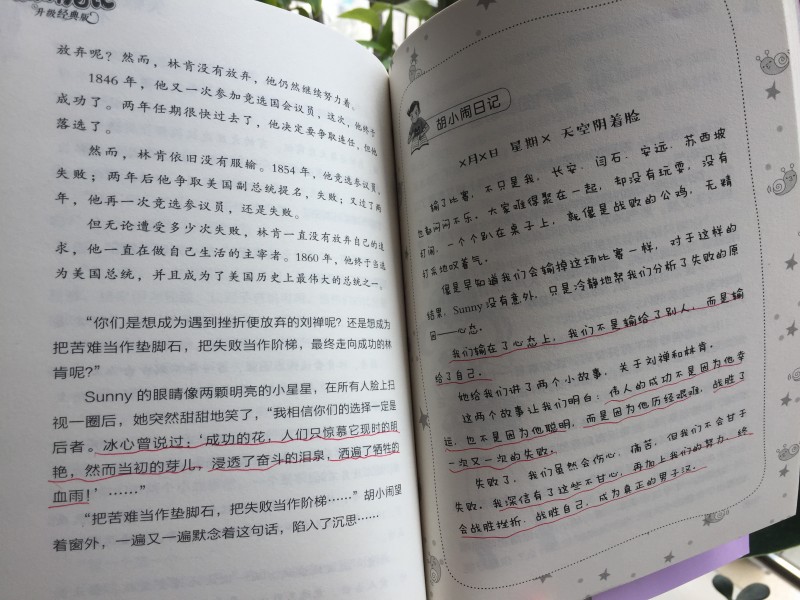 升级经典版
放弃呢？然而，林肯没有放弃，他仍然继续努力着。
1846 年，他又一次参加竞选国会议员，这次，他终于
成功了。两年任期很快过去了，他决定要争取连任，但他
落选了。
然而，林肯依旧没有服输。1854 年，他竞选参议员，
失败；两年后他争取美国副总统提名，失败；又过了两
年，他再一次竞选参议员，还是失败。
但无论遭受多少次失败，林肯一直没有放弃自己的追
求，他一直在做自己生活的主宰者。1860 年，他终于当选
为美国总统，并且成为了美国历史上最伟大的总统之一。
“你们是想成为遇到挫折便放弃的刘禅呢？还是想成为
把苦难当作垫脚石，把失败当作阶梯，最终走向成功的林
肯呢？”
Sunny 的眼睛像两颗明亮的小星星，在所有人脸上扫
视一圈后，她突然甜甜地笑了，“我相信你们的选择一定是
后者。冰心曾说过：‘成功的花，人们只惊慕它现时的明
艳，然而当初的芽儿，浸透了奋斗的泪泉，洒遍了牺牲的
血雨！’……”
“把苦难当作垫脚石，把失败当作阶梯……”胡小闹望
着窗外，一遍又一遍默念着这句话，陷入了沉思……
胡小闹日记
×月×日 星期× 天空阴着脸
输了比赛，不只是我，长安、闫石、安远、苏西坡
也都闷闷不乐，大家难得聚在一起，却没有玩耍，没有
打闹，一个个趴在桌子上，就像是战败的公鸡，无精
打采地叹着气。
像是早知道我们会输掉这场比赛一样，对于这样的
结果，Sunny 没有意外，只是冷静地帮我们分析了失败的原
因——心态。
我们输在了心态上，我们不是输给了别人，而是输
给了自己。
她给我们讲了两个小故事，关于刘禅和林肯。
这两个故事让我们明白：伟人的成功不是因为他幸
运，也不是因为他聪明，而是因为他历经艰难，战胜了
一次又一次的失败。
失败了，我们虽然会伤心、痛苦，但我们不会甘于
失败，我深信有了这些不甘心，再加上我们的努力，终
会战胜挫折，战胜自己，成为真正的男子汉。